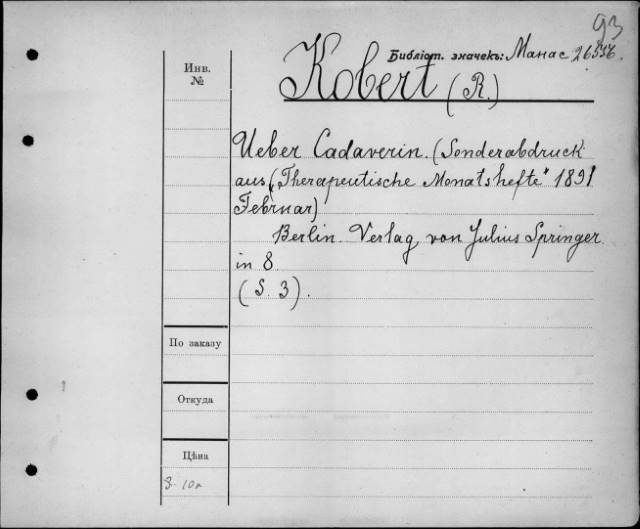 93
Библіот. значекъ: Манас 26556.
Инв.
№
Kobert (R.)
Ueber Cadaverin. (Sonderabdruck
aus („Therapeutische Monatshefte" 1891
Februar)
Berlin. Verlag von Julius Springer.
in 8.
(S. 3).
По заказу
Откуда
Цѣна